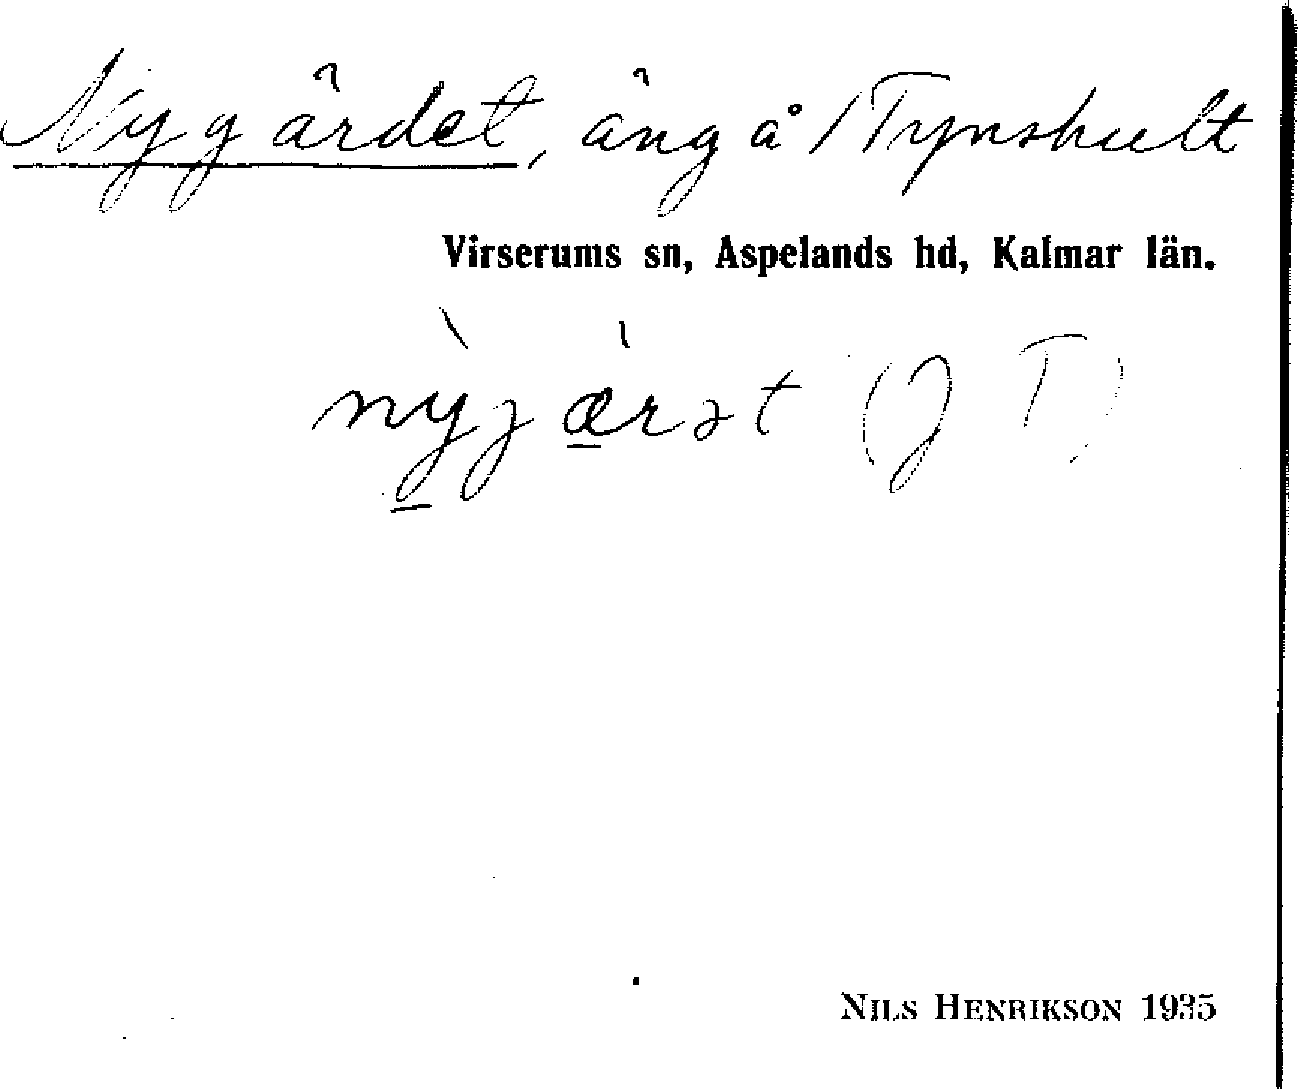 Nygärdet, äng å /Tynshult
Virserums sn, Aspelands hd, Kalmar län.
nỳjæ̀rət (J T)
NILS HENRIKSON 1935